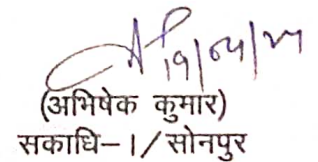 19/04/24
(अभिषेक कुमार)
सकाधि-I/सोनपुर